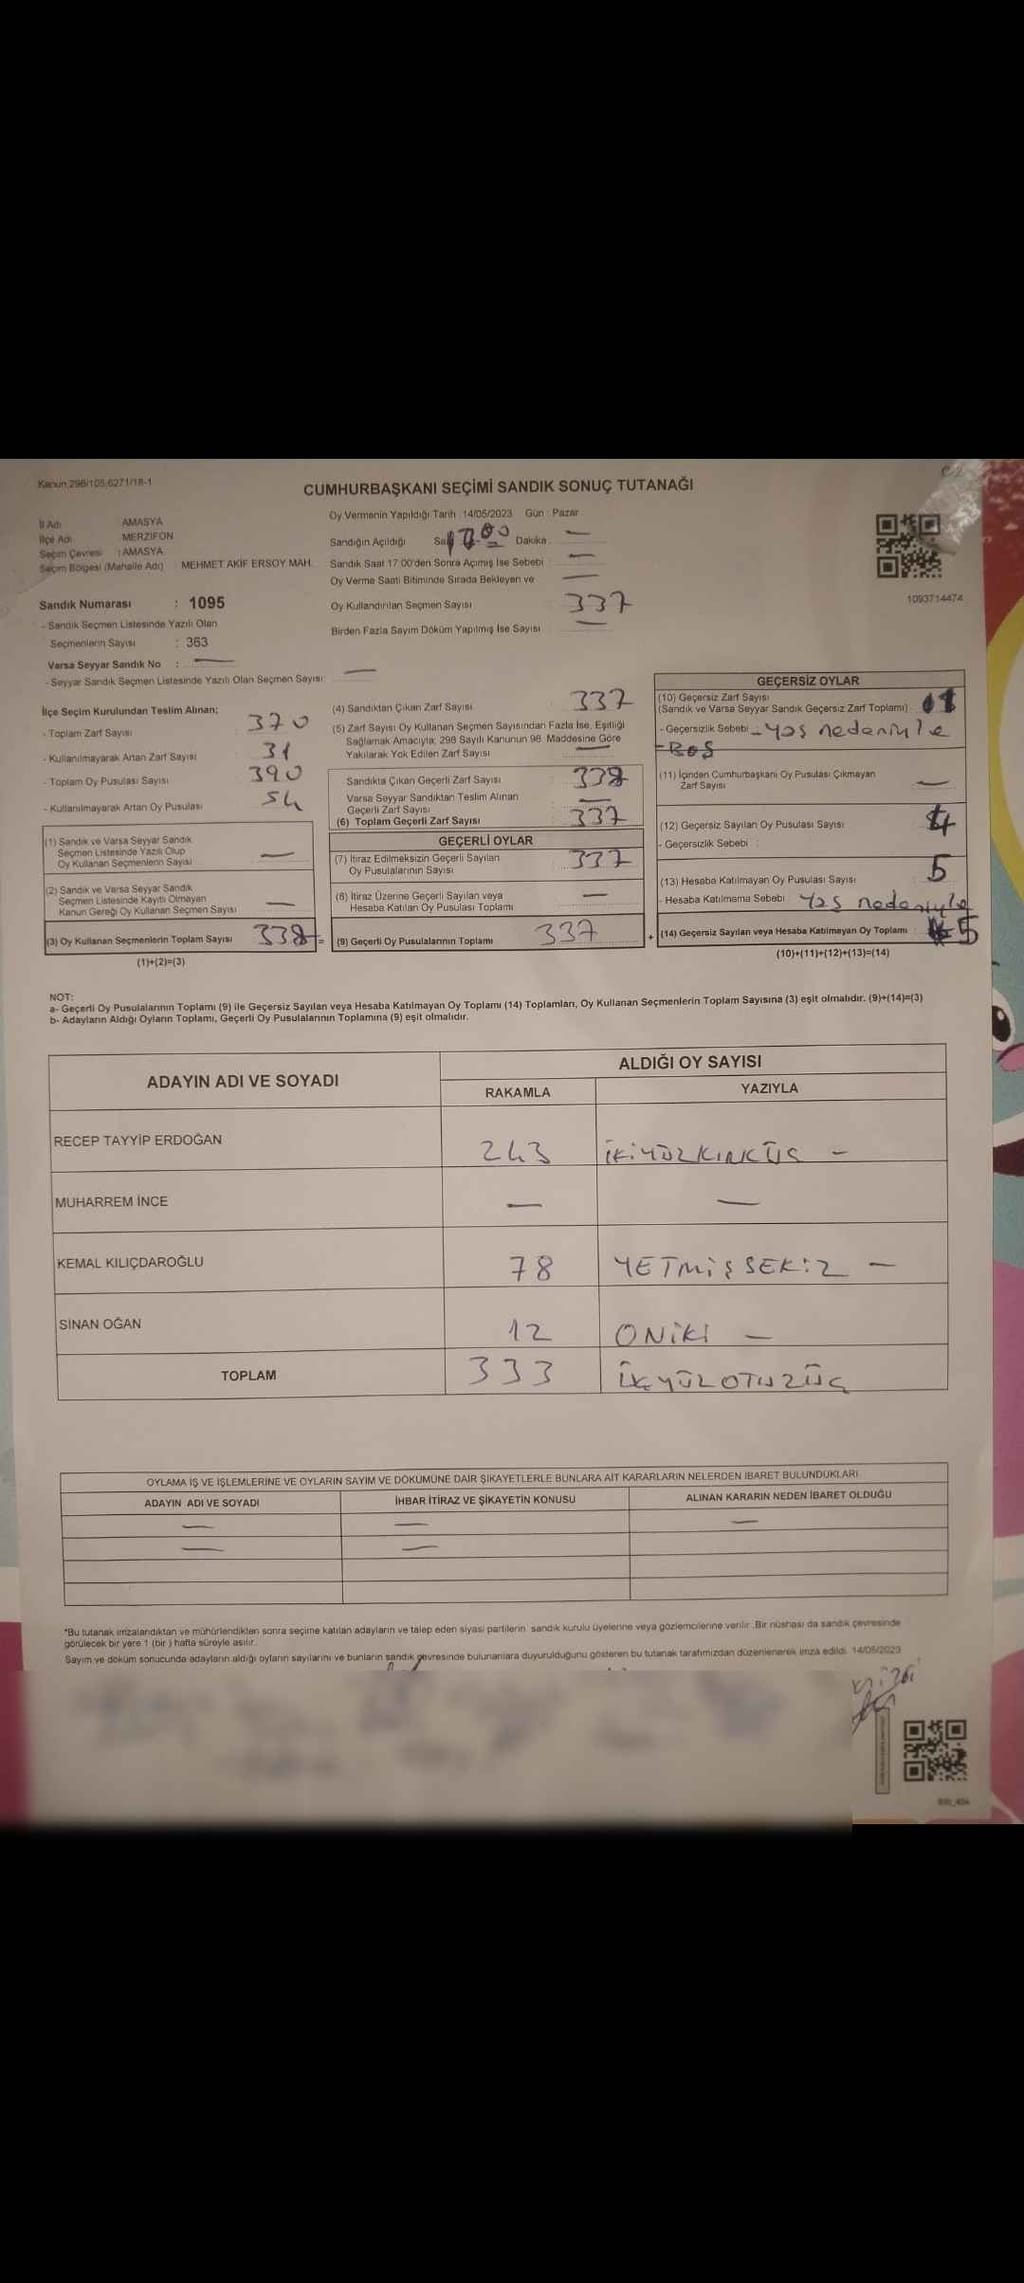 Kanun:298/105,6271/18-1
CUMHURBAŞKANI SEÇİMİ SANDIK SONUÇ TUTANAĞI
İl Adı : AMASYA
İlçe Adı : MERZİFON
Seçim Çevresi : AMASYA
Seçim Bölgesi (Mahalle Adı) MEHMET AKİF ERSOY MAH.
Sandık Numarası : 1095
- Sandık Seçmen Listesinde Yazılı Olan
Seçmenlerin Sayısı : 363
Varsa Seyyar Sandık No : —
- Seyyar Sandık Seçmen Listesinde Yazılı Olan Seçmen Sayısı: —
Oy Vermenin Yapıldığı Tarih : 14/05/2023 Gün : Pazar
Sandığın Açıldığı Dakika : —
Sandık Saat 17:00'den Sonra Açımış İse Sebebi : —
Oy Verme Saati Bitiminde Sırada Bekleyen ve —
Oy Kullandırılan Seçmen Sayısı : 337
Birden Fazla Sayım Döküm Yapılmış İse Sayısı : —
1093714474
İlçe Seçim Kurulundan Teslim Alınan;
- Toplam Zarf Sayısı : 370
- Kullanılmayarak Artan Zarf Sayısı : 31
- Toplam Oy Pusulası Sayısı : 390
- Kullanılmayarak Artan Oy Pusulası : 54
(1) Sandık ve Varsa Seyyar Sandık
Seçmen Listesinde Yazılı Olup
Oy Kullanan Seçmenlerin Sayısı —
(2) Sandık ve Varsa Seyyar Sandık
Seçmen Listesinde Kayıtlı Olmayan
Kanun Gereği Oy Kullanan Seçmen Sayısı —
(3) Oy Kullanan Seçmenlerin Toplam Sayısı 338 =
(1)+(2)=(3)
(4) Sandıktan Çıkan Zarf Sayısı 337
(5) Zarf Sayısı Oy Kullanan Seçmen Sayısından Fazla İse, Eşitliği
Sağlamak Amacıyla; 298 Sayılı Kanunun 98. Maddesine Göre
Yakılarak Yok Edilen Zarf Sayısı —
Sandıkta Çıkan Geçerli Zarf Sayısı 338
Varsa Seyyar Sandıktan Teslim Alınan
Geçerli Zarf Sayısı —
(6) Toplam Geçerli Zarf Sayısı 337
GEÇERLİ OYLAR
(7) İtiraz Edilmeksizin Geçerli Sayılan
Oy Pusulalarının Sayısı 337
(8) İtiraz Üzerine Geçerli Sayılan veya
Hesaba Katılan Oy Pusulası Toplamı —
(9) Geçerli Oy Pusulalarının Toplamı 337 +
GEÇERSİZ OYLAR
(10) Geçersiz Zarf Sayısı
(Sandık ve Varsa Seyyar Sandık Geçersiz Zarf Toplamı)
- Geçersizlik Sebebi - Yaş nedeniyle
- BOŞ
(11) İçinden Cumhurbaşkanı Oy Pusulası Çıkmayan
Zarf Sayısı —
(12) Geçersiz Sayılan Oy Pusulası Sayısı 4
- Geçersizlik Sebebi :
(13) Hesaba Katılmayan Oy Pusulası Sayısı 5
- Hesaba Katılmama Sebebi Yaş nedeniyle
(14) Geçersiz Sayılan veya Hesaba Katılmayan Oy Toplamı 5
(10)+(11)+(12)+(13)=(14)
NOT:
a- Geçerli Oy Pusulalarının Toplamı (9) ile Geçersiz Sayılan veya Hesaba Katılmayan Oy Toplamı (14) Toplamları, Oy Kullanan Seçmenlerin Toplam Sayısına (3) eşit olmalıdır. (9)+(14)=(3)
b- Adayların Aldığı Oyların Toplamı, Geçerli Oy Pusulalarının Toplamına (9) eşit olmalıdır.
ADAYIN ADI VE SOYADI
ALDIĞI OY SAYISI
RAKAMLA YAZIYLA
RECEP TAYYİP ERDOĞAN 243 İKİYÜZKIRKÜÇ —
MUHARREM İNCE — —
KEMAL KILIÇDAROĞLU 78 YETMİŞSEKİZ —
SİNAN OĞAN 12 ONİKİ —
TOPLAM 333 ÜÇYÜZOTUZÜÇ
OYLAMA İŞ VE İŞLEMLERİNE VE OYLARIN SAYIM VE DÖKÜMÜNE DAİR ŞİKAYETLERLE BUNLARA AİT KARARLARIN NELERDEN İBARET BULUNDUKLARI
ADAYIN ADI VE SOYADI İHBAR İTİRAZ VE ŞİKAYETİN KONUSU ALINAN KARARIN NEDEN İBARET OLDUĞU
— — —
— —
*Bu tutanak imzalandıktan ve mühürlendikten sonra seçime katılan adayların ve talep eden siyasi partilerin sandık kurulu üyelerine veya gözlemcilerine verilir. Bir nüshası da sandık çevresinde
görülecek bir yere 1 (bir ) hafta süreyle asılır.
Sayım ve döküm sonucunda adayların aldığı oyların sayılarını ve bunların sandık çevresinde bulunanlara duyurulduğunu gösteren bu tutanak tarafımızdan düzenlenerek imza edildi. 14/05/2023